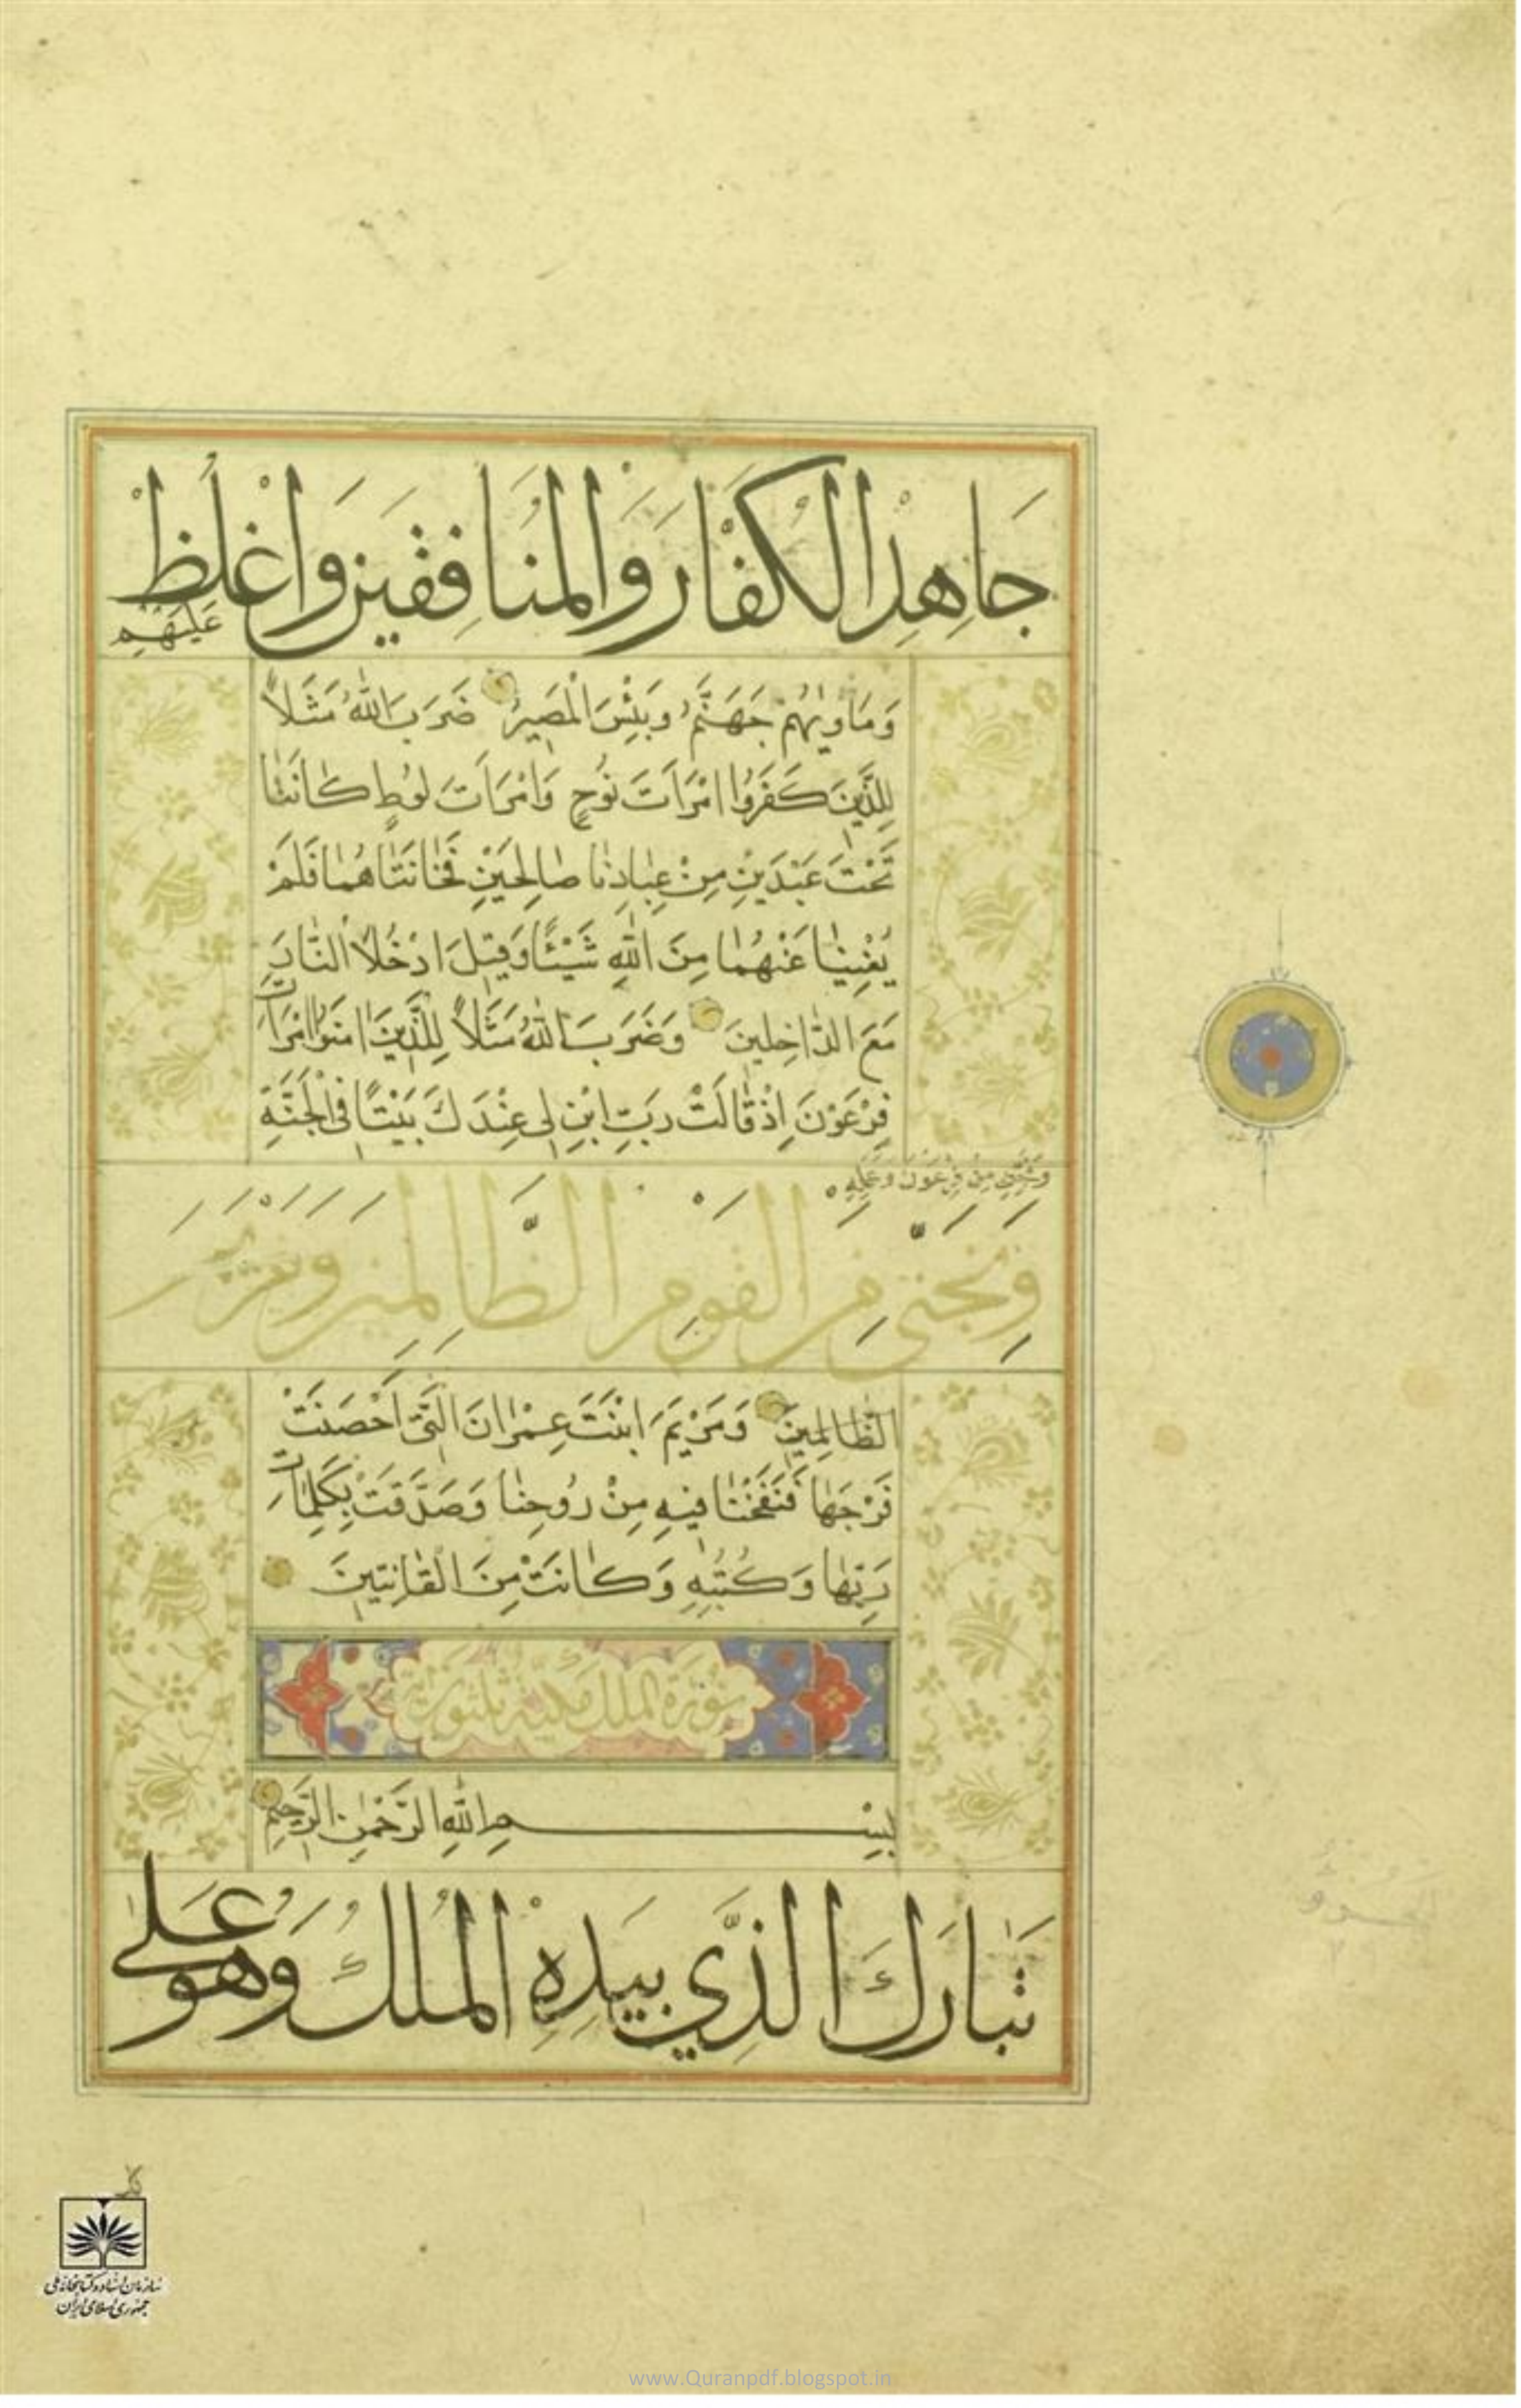 جَاهِدِ الْكُفَّارَ وَالْمُنَافِقِينَ وَاغْلُظْ
عَلَيْهِمْ
وَمَأْوٰيهُمْ جَهَنَّمُ وَبِئْسَ الْمَصِيرُ ضَرَبَ اللّٰهُ مَثَلاً
لِلَّذِينَ كَفَرُوا امْرَاَتَ نُوحٍ وَامْرَاَتَ لُوطٍ كَانَتَا
تَحْتَ عَبْدَيْنِ مِنْ عِبَادِنَا صَالِحَيْنِ فَخَانَتَاهُمَا فَلَمْ
يُغْنِيَا عَنْهُمَا مِنَ اللّٰهِ شَيْئًا وَقِيلَ ادْخُلَا النَّارَ
مَعَ الدَّاخِلِينَ وَضَرَبَ اللّٰهُ مَثَلاً لِلَّذِينَ اٰمَنُوا امْرَاَتَ
فِرْعَوْنَ اِذْ قَالَتْ رَبِّ ابْنِ لِي عِنْدَكَ بَيْتًا فِي الْجَنَّةِ
وَنَجِّنِي مِنْ فِرْعَوْنَ وَعَمَلِهِ
وَنَجِّنِي مِنَ الْقَوْمِ الظَّالِمِينَ وَمَرْيَمَ
الظَّالِمِينَ وَمَرْيَمَ ابْنَتَ عِمْرَانَ الَّتِي اَحْصَنَتْ
فَرْجَهَا فَنَفَخْنَا فِيهِ مِنْ رُوحِنَا وَصَدَّقَتْ بِكَلِمَاتِ
رَبِّهَا وَكُتُبِهِ وَكَانَتْ مِنَ الْقَانِتِينَ
سورة الملك مكية ثلثون
بِسْمِ اللّٰهِ الرَّحْمٰنِ الرَّحِيمِ
تَبَارَكَ الَّذِي بِيَدِهِ الْمُلْكُ وَهُوَ عَلٰى
سازمان اسناد و کتابخانه ملی
جمهوری اسلامی ایران
www.Quranpdf.blogspot.in